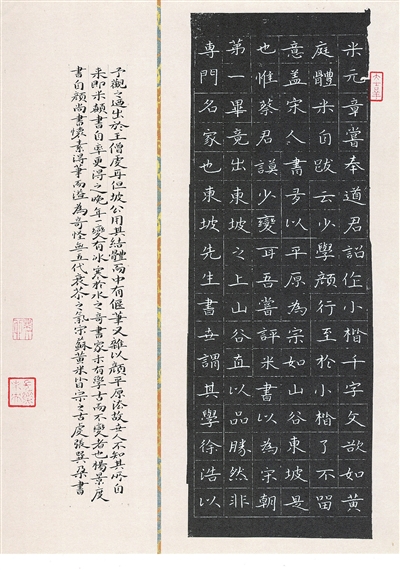 米元章嘗奉道君詔作小楷千字文欲如黃
庭體米自跋云少學顏行至於小楷了不留
意盖宋人書多以平原為宗如山谷東坡是
也惟蔡君謨少變耳吾嘗評米書以為宋朝
第一畢竟出東坡之上山谷直以品勝然非
專門名家也東坡先生書世謂其學徐浩以
予觀之迺出於王僧虔耳但坡公用其結體而中有偃筆又雜以顏平原法故世人不知其所自
来即米顛書自率更得之晚年一變有冰寒於水之奇書家未有學古而不變者也楊景度
書自顏尚書懷素得筆而溢為奇怪無五代衰苶之氣宋蘇黃米皆宗之古虔張巽書